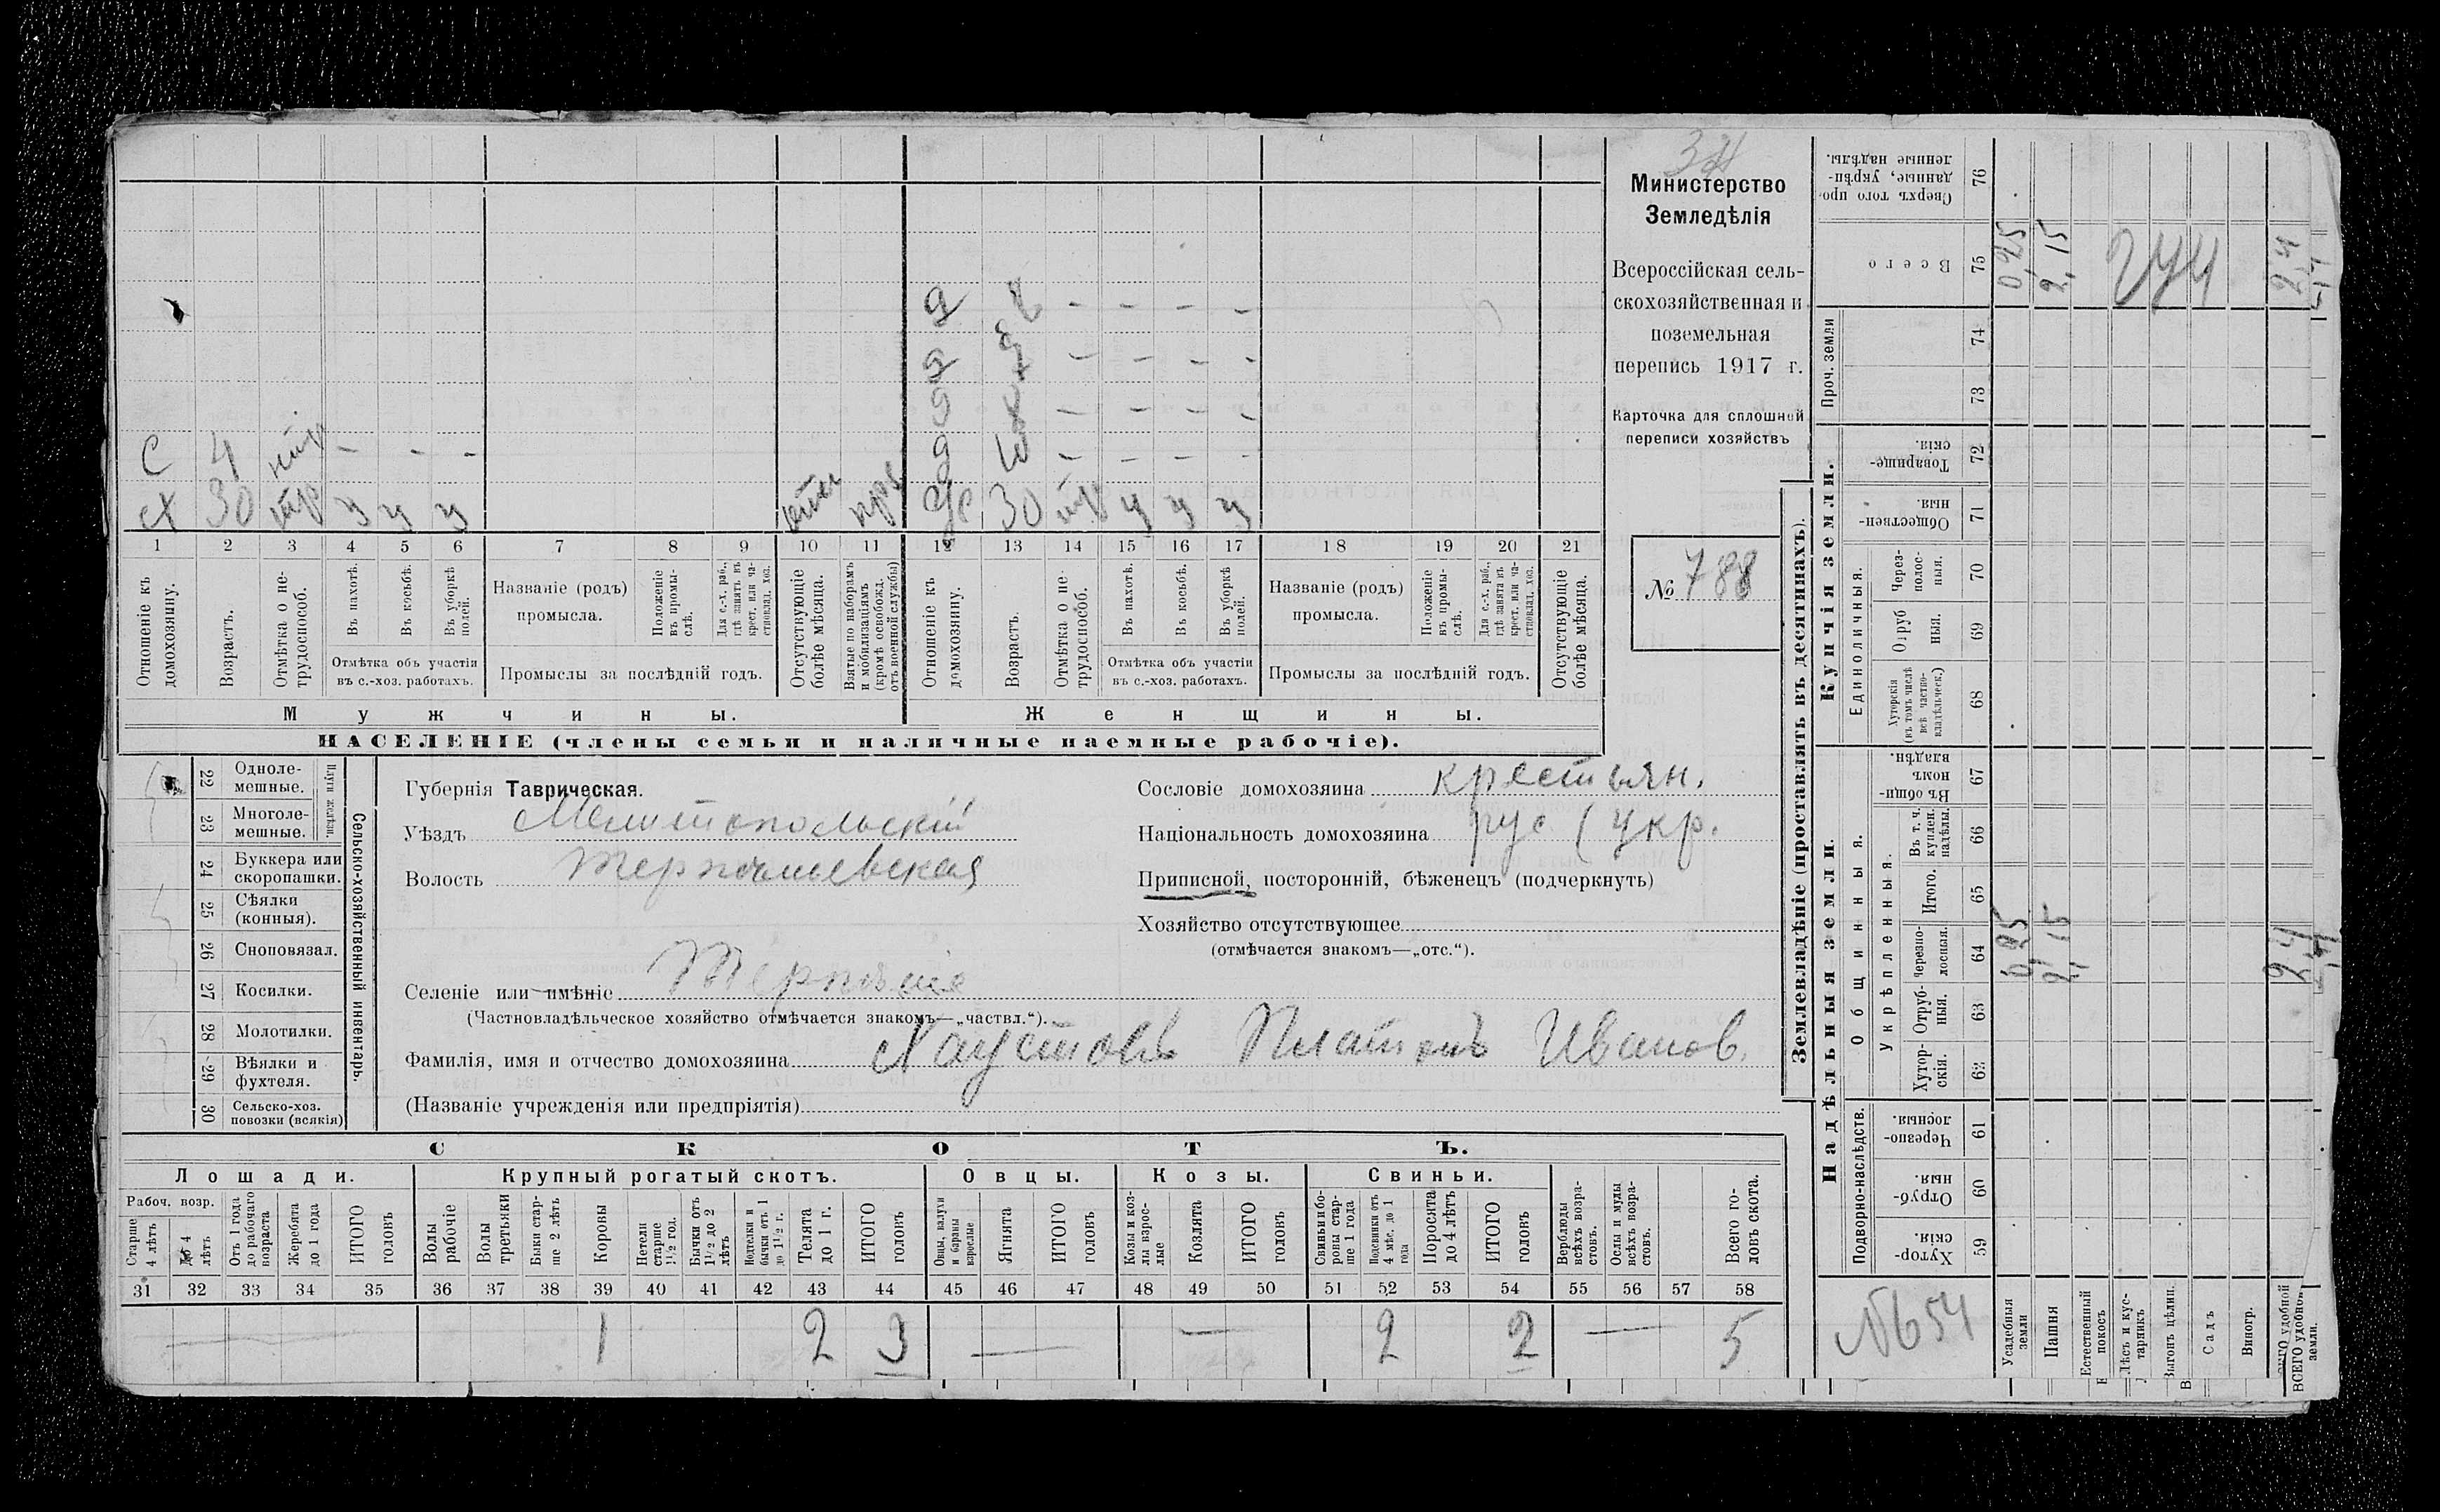 Министерство
Земледѣлія
Всероссійская сель-
скохозяйственная и
поземельная
перепись 1917 г.
Карточка для сплошной
переписи хозяйствъ
№ 788
д – – – –
д – – – –
д – – – –
С 4 – – – д – – – –
30 у у у 30 у у у
1 2 3 4 5 6 7 8 9 10 11 12 13 14 15 16 17 18 19 20 21
Отношеніе къ домохозяину.
Возрастъ.
Отмѣтка о не-трудоспособ.
Въ пахотѣ.
Въ косьбѣ.
Въ уборкѣ полей.
Отмѣтка объ участіи
въ с.-хоз. работахъ.
Названіе (родъ)
промысла.
Положеніе въ промы-слѣ.
Для с.-х. раб., гдѣ занятъ въ крест. или ча-стновлад. хоз.
Промыслы за послѣдній годъ.
Отсутствующіе болѣе мѣсяца.
Взятые по наборамъ и мобилизаціямъ (кромѣ освобожд. отъ военной службы)
Отношеніе къ домохозяину.
Возрастъ.
Отмѣтка о не-трудоспособ.
Въ пахотѣ.
Въ косьбѣ.
Въ уборкѣ полей.
Отмѣтка объ участіи
въ с.-хоз. работахъ.
Названіе (родъ)
промысла.
Положеніе въ промы-слѣ.
Для с.-х. раб., гдѣ занята въ крест. или ча-стновлад. хоз.
Промыслы за послѣдній годъ.
Отсутствующіе болѣе мѣсяца.
Мужчины. Женщины.
НАСЕЛЕНІЕ (члены семьи и наличные наемные рабочіе).
22 Одноле-мешные.
23 Многоле-мешные.
Плуги желѣзн.
24 Буккера или скоропашки.
25 Сѣялки (конныя).
26 Сноповязал.
27 Косилки.
28 Молотилки.
29 Вѣялки и фухтеля.
30 Сельско-хоз. повозки (всякія)
Сельско-хозяйственный инвентарь.
Губернія Таврическая.
Уѣздъ Мелитопольскій
Волость Терпѣніевская
Селеніе или имѣніе Терпѣніе
(Частновладѣльческое хозяйство отмѣчается знакомъ—„частвл.“).
Фамилія, имя и отчество домохозяина Хаустовъ Платонъ Иванов.
(Названіе учрежденія или предпріятія)
Сословіе домохозяина крестьян.
Національность домохозяина рус (укр.
Приписной, посторонній, бѣженецъ (подчеркнуть)
Хозяйство отсутствующее
(отмѣчается знакомъ—„отс.“).
СКОТЪ.
Лошади. Крупный рогатый скотъ. Овцы. Козы. Свиньи.
Рабоч. возр.
Старше 4 лѣтъ
До 4 лѣтъ
Отъ 1 года до рабочаго возраста
Жеребята до 1 года
ИТОГО головъ
Волы рабочіе
Волы третьяки
Быки стар-ше 2 лѣтъ
Коровы
Нетели старше 1½ год.
Бычки отъ 1½ до 2 лѣтъ
Подтелки и бычки отъ 1 до 1½ г.
Телята до 1 г.
ИТОГО головъ
Овцы, валухи и бараны взрослые
Ягнята
ИТОГО головъ
Козы и коз-лы взрос-лые
Козлята
ИТОГО головъ
Свиньи и бо-ровы стар-ше 1 года
Подсвинки отъ 4 мѣс. до 1 года
Поросята до 4 лѣтъ
ИТОГО головъ
Верблюды всѣхъ возра-стовъ.
Ослы и мулы всѣхъ возра-стовъ.
Всего го-ловъ скота.
31 32 33 34 35 36 37 38 39 40 41 42 43 44 45 46 47 48 49 50 51 52 53 54 55 56 57 58
— 1 2 3 — — 2 2 — 5
Землевладѣніе (проставлять въ десятинахъ).
Купчія земли.
Надѣльныя земли.
Сверхъ того про-данные, укрѣп-ленные надѣлы. 76
Всего 75
Проч. земли 74 73
Товарище-скія. 72
Обществен-ныя. 71
Единоличныя.
Через-полос-ныя. 70
Отруб-ныя. 69
Хуторскія (въ томъ числѣ всѣ частно-владѣльческ.) 68
Въ общи-номъ владѣн. 67
Общинныя.
Укрѣпленныя.
Въ т. ч. куплен. надѣлы. 66
Итого. 65
Черезпо-лосныя. 64
Отруб-ныя. 63
Хутор-скія. 62
Подворно-наслѣдств.
Черезпо-лосныя. 61
Отруб-ныя. 60
Хутор-скія. 59
0,25 2,15 2,4
0,25 2,15 2,4
№654
Усадебныя земли
Пашня
Естественный покосъ
Лѣсъ и кус-тарникъ
Выгонъ цѣлин.
Садъ
Виногр.
ВСЕГО удобной земли.